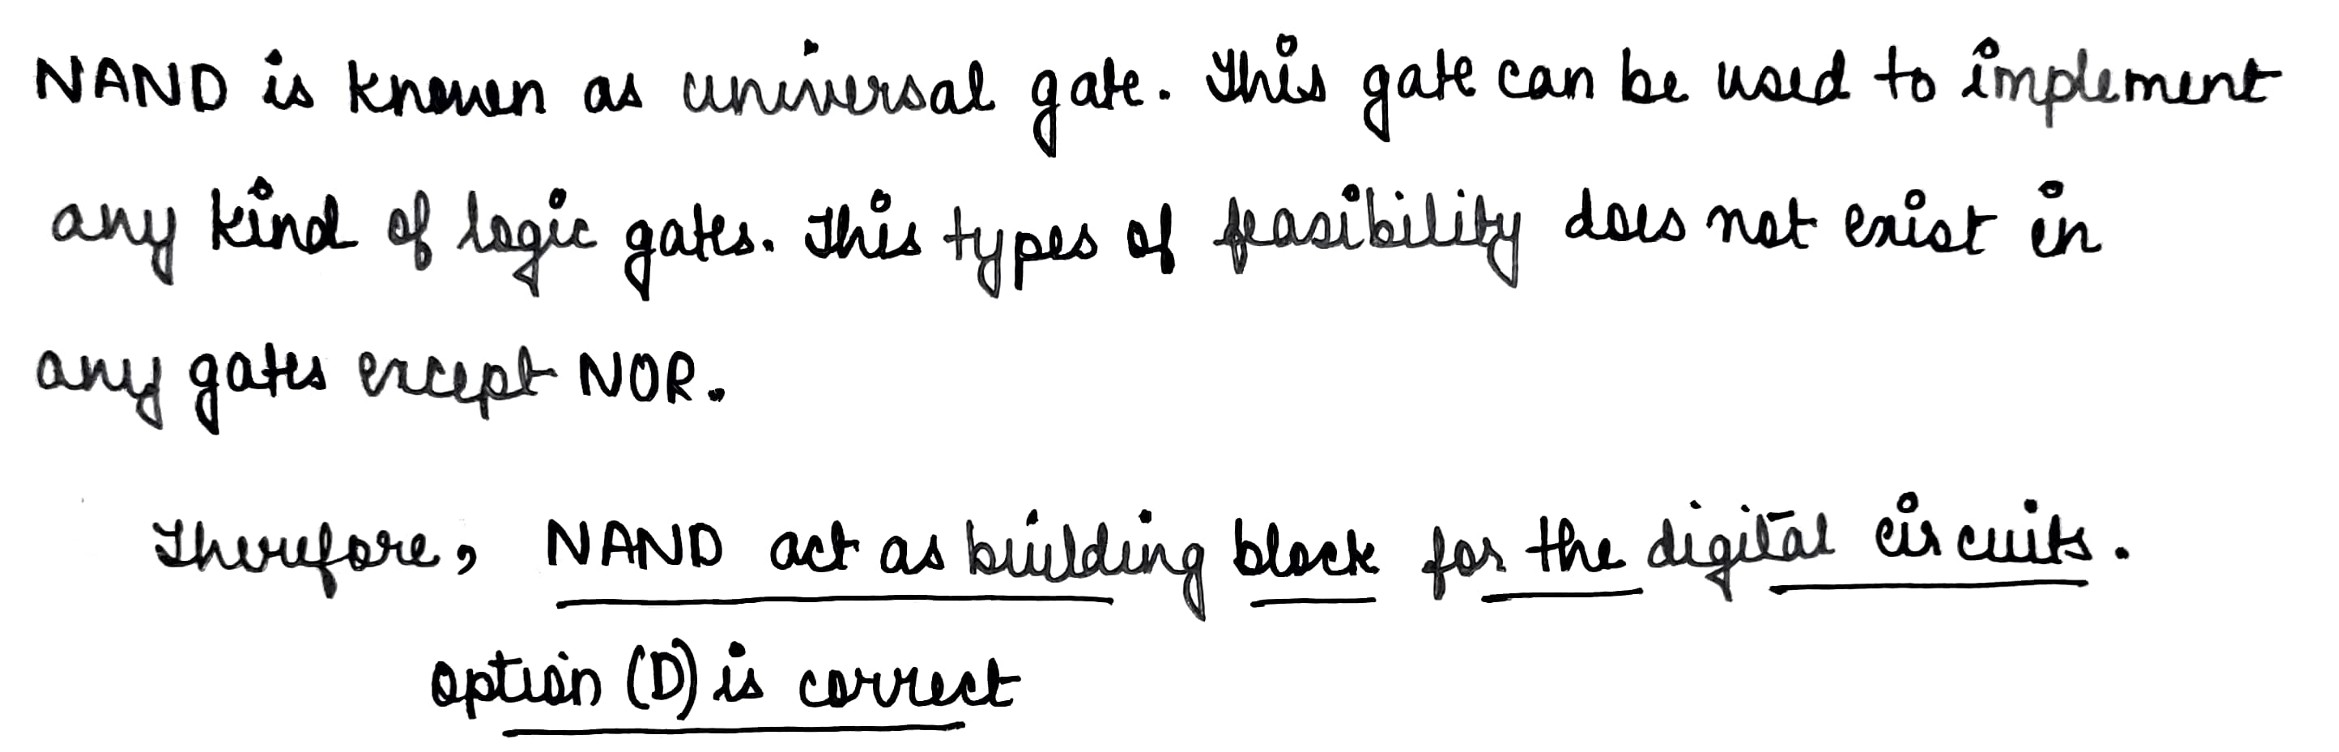 NAND is known as universal gate. This gate can be used to implement
any kind of logic gates. This types of feasibility does not exist in
any gates except NOR.
Therefore, NAND act as building block for the digital circuits.
option (D) is correct